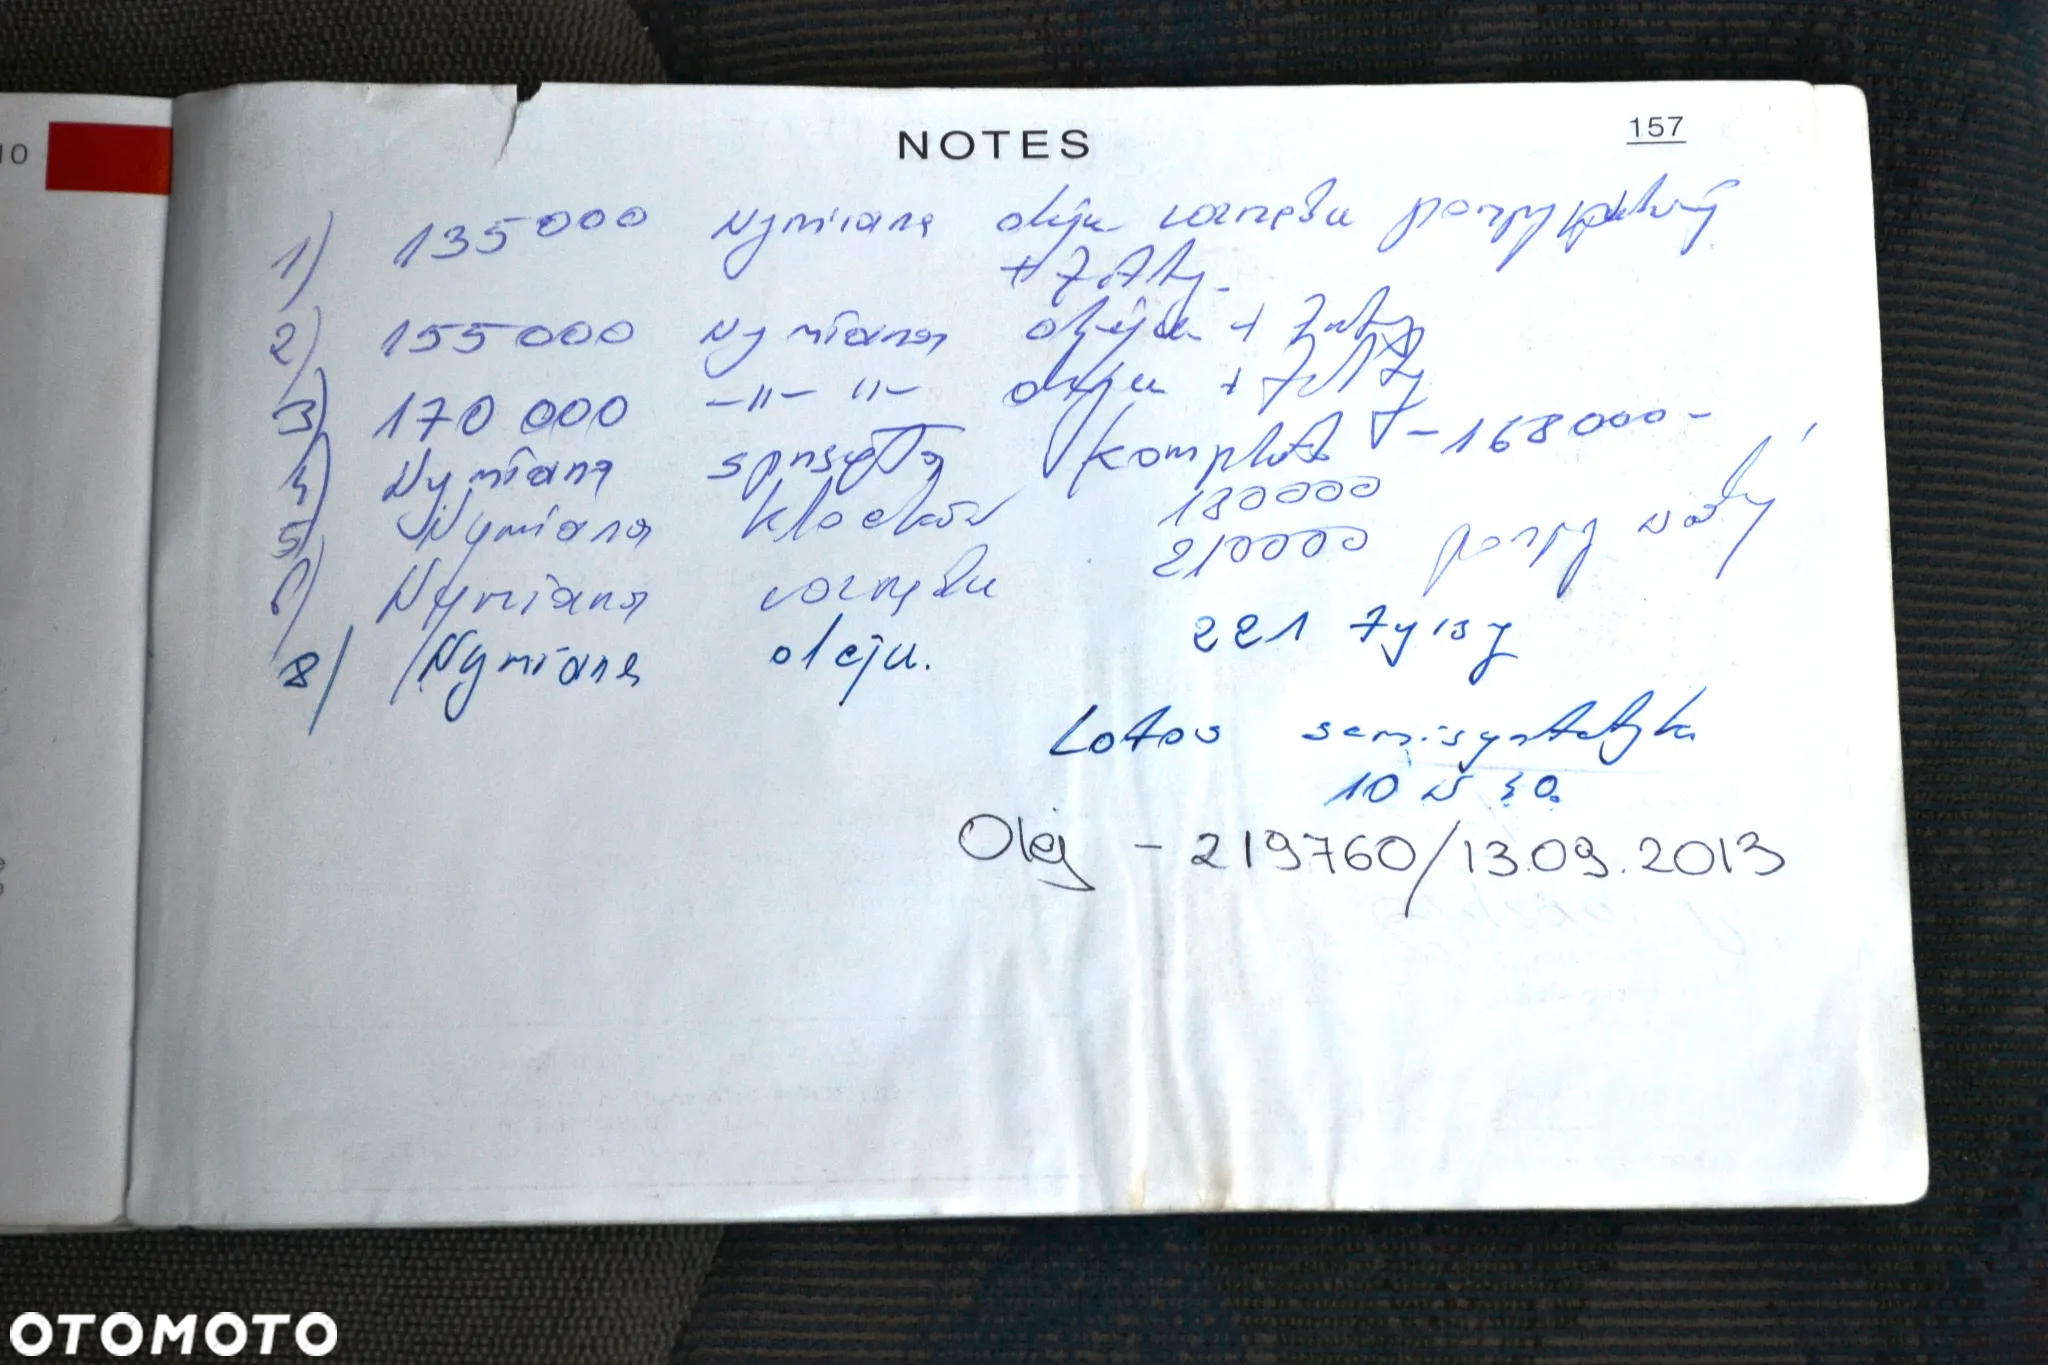 10
NOTES
157
1) 135000 Wymiana oleju rozrządu pompy
+ filtry.
2) 155000 Wymiana oleju + filtry
3) 170 000 -"- "- oleju + filtry
4) Wymiana sprzęgła komplet - 168000 -
5) Wymiana klocków 180000
6) Wymiana rozrządu 210000 pompy wody
8) Wymiana oleju. 221 Tysięcy
Lotos semisyntetyka
10 W 40
Olej - 219760/13.09.2013
OTOMOTO